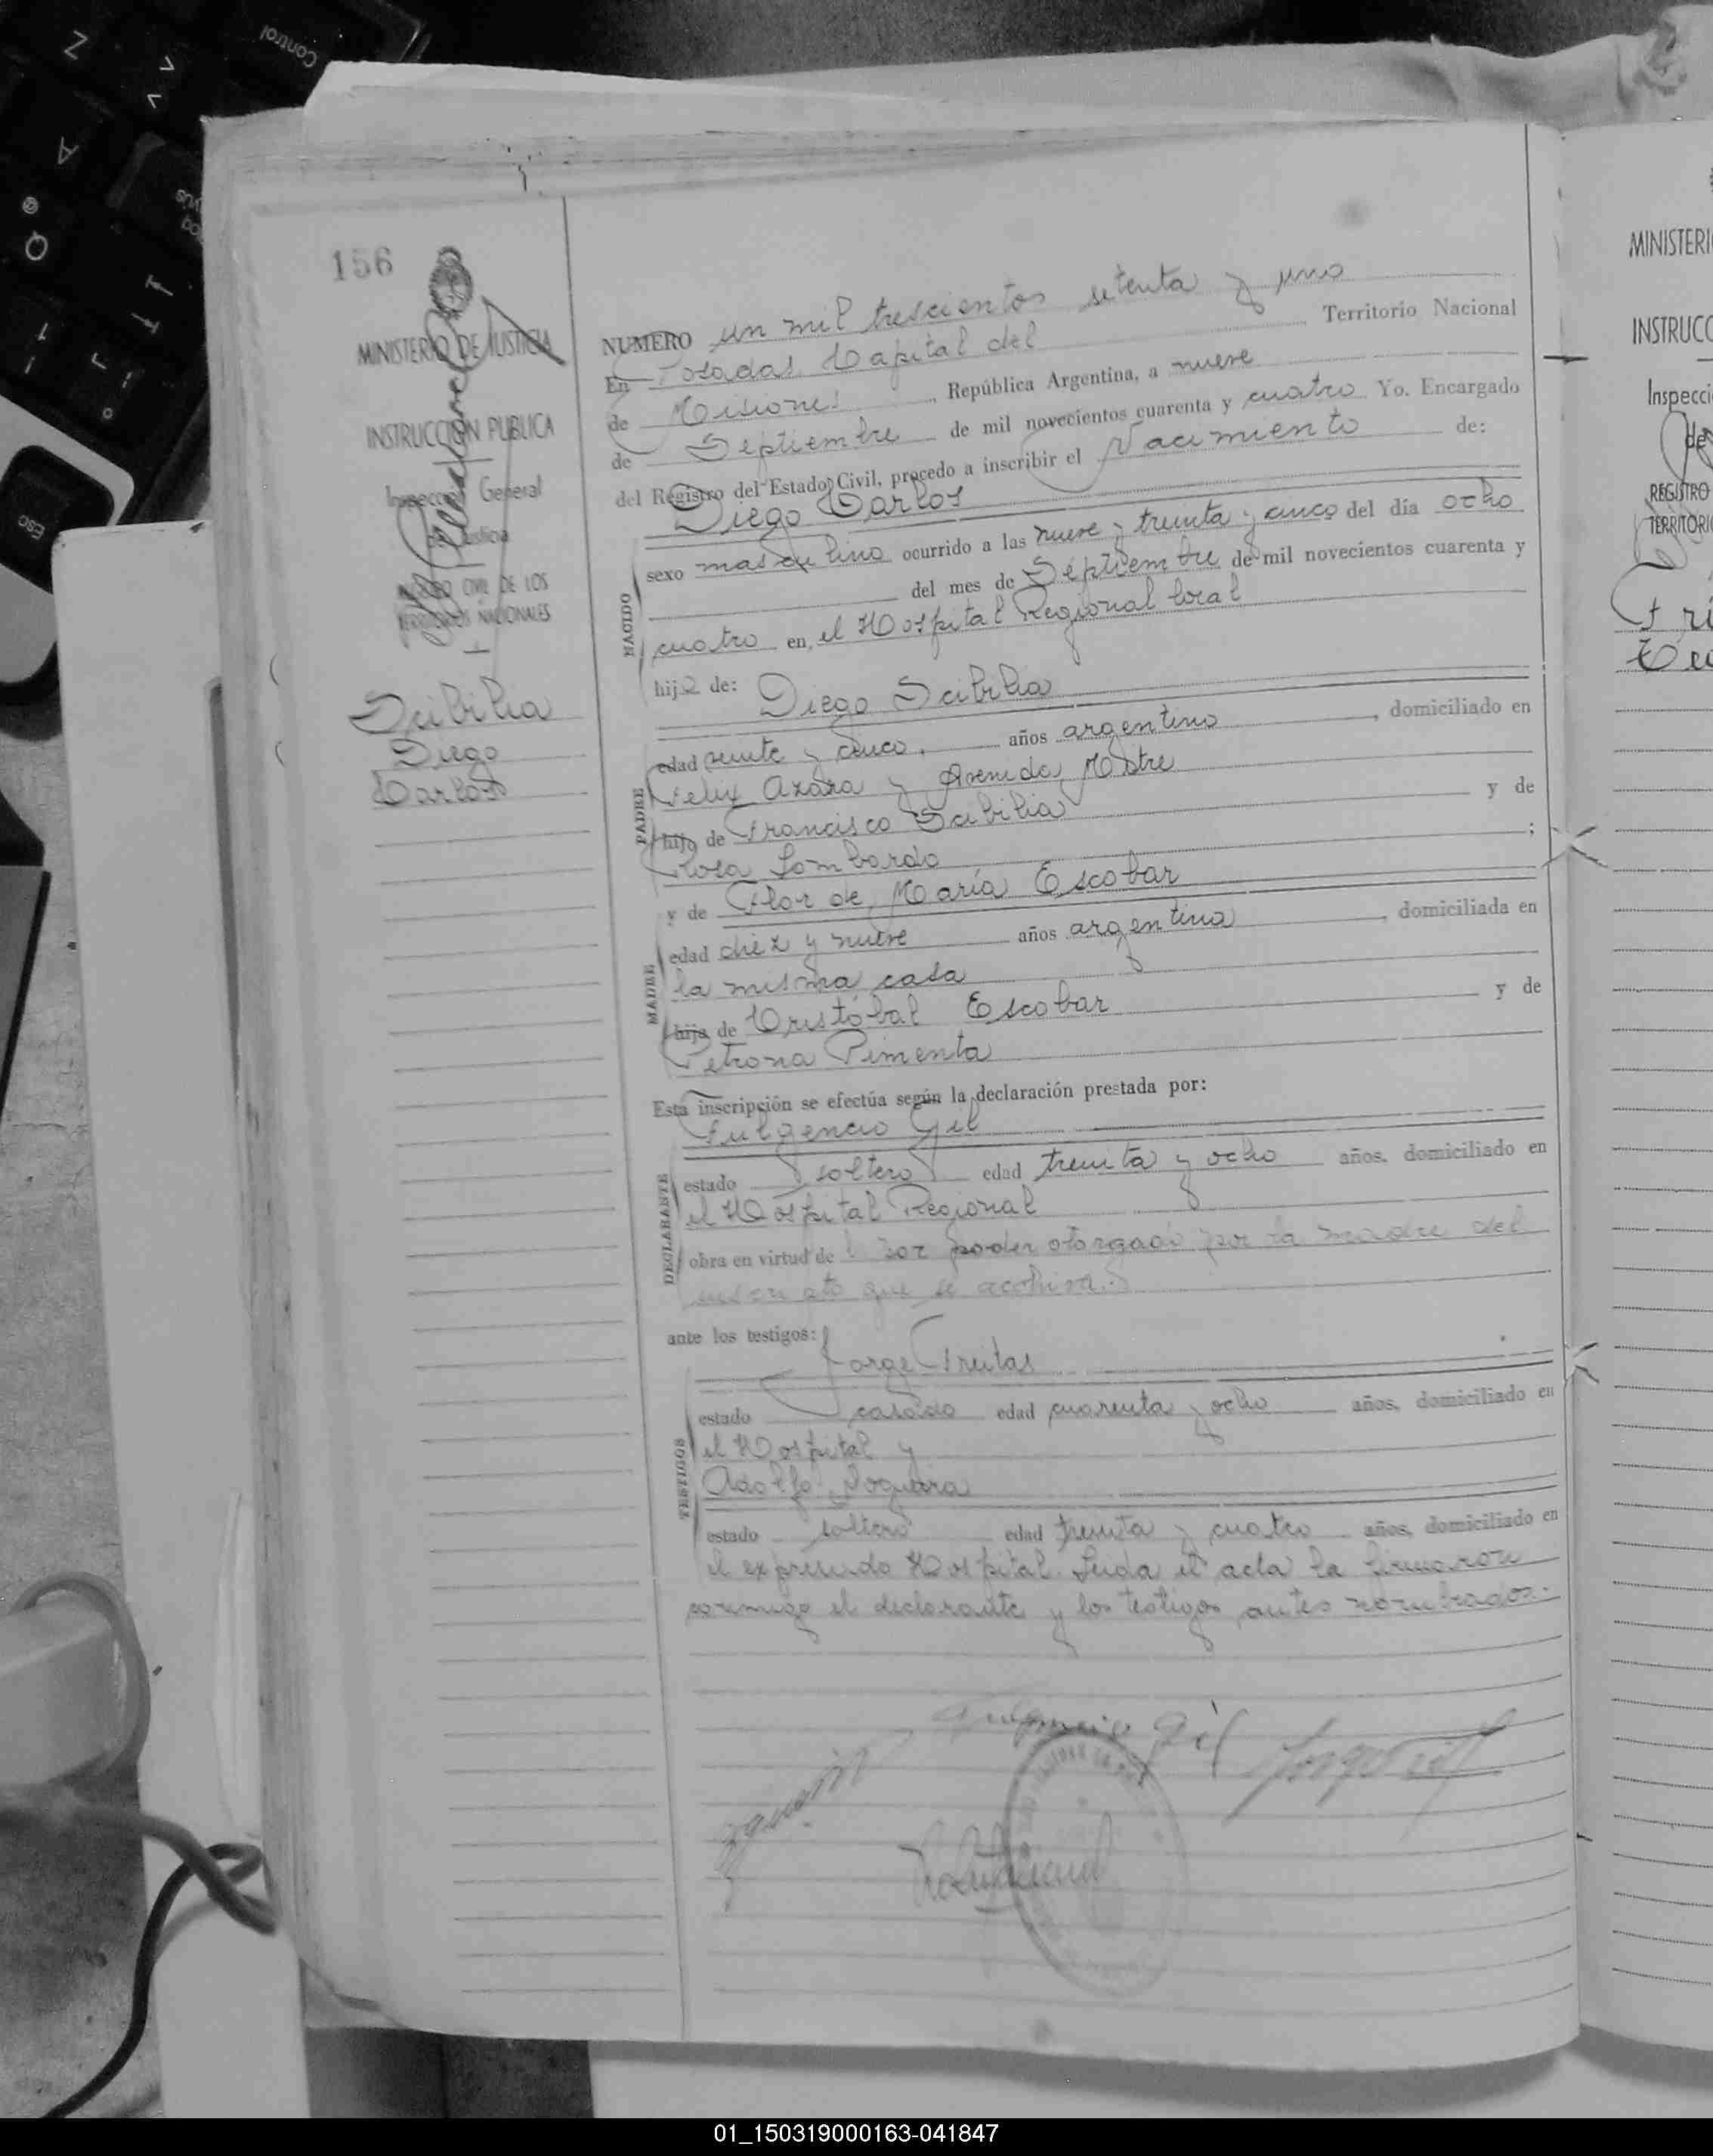 Control
Z
A
Q
Esc
156
MINISTERIO DE JUSTICIA
INSTRUCCION PUBLICA
Inspección General
de Justicia
REGISTRO CIVIL DE LOS
TERRITORIOS NACIONALES
Scibilia
Diego
Carlos
NUMERO un mil trescientos setenta y uno
En Posadas, Capital del Territorio Nacional
de Misiones, República Argentina, a nueve
de Septiembre de mil novecientos cuarenta y cuatro Yo, Encargado
del Registro del Estado Civil, procedo a inscribir el Nacimiento de:
Diego Carlos
NACIDO
sexo masculino ocurrido a las nueve y treinta y cinco del día ocho
del mes de Septiembre de mil novecientos cuarenta y
cuatro en, el Hospital Regional local
hijo de: Diego Scibilia
PADRE
edad veinte y cinco, años argentino, domiciliado en
Felix Azara y Avenida Mitre
hijo de Francisco Scibilia y de
Rosa Lombardo;
y de Flor de María Escobar
MADRE
edad diez y nueve años argentina, domiciliada en
la misma casa
hija de Cristóbal Escobar y de
Petrona Pimenta
Esta inscripción se efectúa según la declaración prestada por:
Fulgencio Gil
DECLARANTE
estado soltero edad treinta y ocho años, domiciliado en
el Hospital Regional
obra en virtud de por poder otorgado por la madre del
que se archiva.
ante los testigos:
Jorge Freitas
TESTIGOS
estado casado edad cuarenta y ocho años, domiciliado en
el Hospital y
Adolfo
estado soltero edad treinta y cuatro años, domiciliado en
el expresado Hospital. Leida el acta la firmaron
conmigo el declarante y los testigos antes nombrados.-
Fulgencio Gil
MINISTERI
INSTRUCC
Inspecci
de
REGISTRO
TERRITORI
01_150319000163-041847